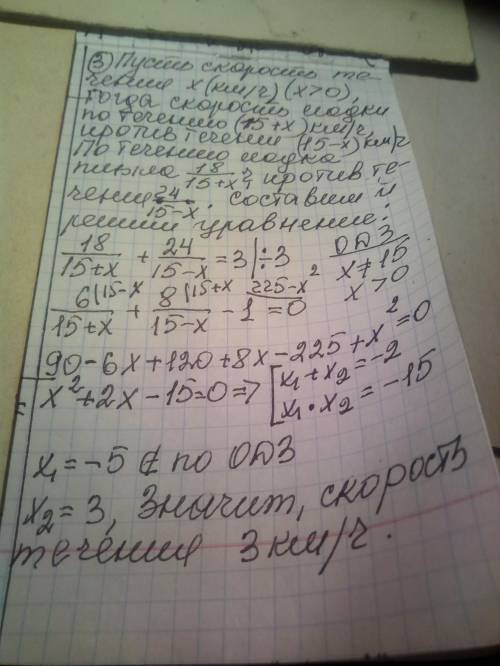 ③ Пусть скорость те-
чения x (км/ч) (x>0),
тогда скорость лодки
по течению (15+x) км/ч,
против течения (15-x) км/ч
По течению лодка
плыла 18/(15+x) ч против те-
чения 24/(15-x). Составим и
решим уравнение:
18/(15+x) + 24/(15-x) = 3 | ÷3 ОДЗ
x≠15
x>0
6|15-x/(15+x) + 8|15+x/(15-x) - 1 225-x² = 0
90-6x+120+8x-225+x²=0
x²+2x-15=0 => [x₁+x₂=-2
x₁·x₂=-15
x₁=-5 ∉ по ОДЗ
x₂=3, Значит, скорость
течения 3 км/ч.